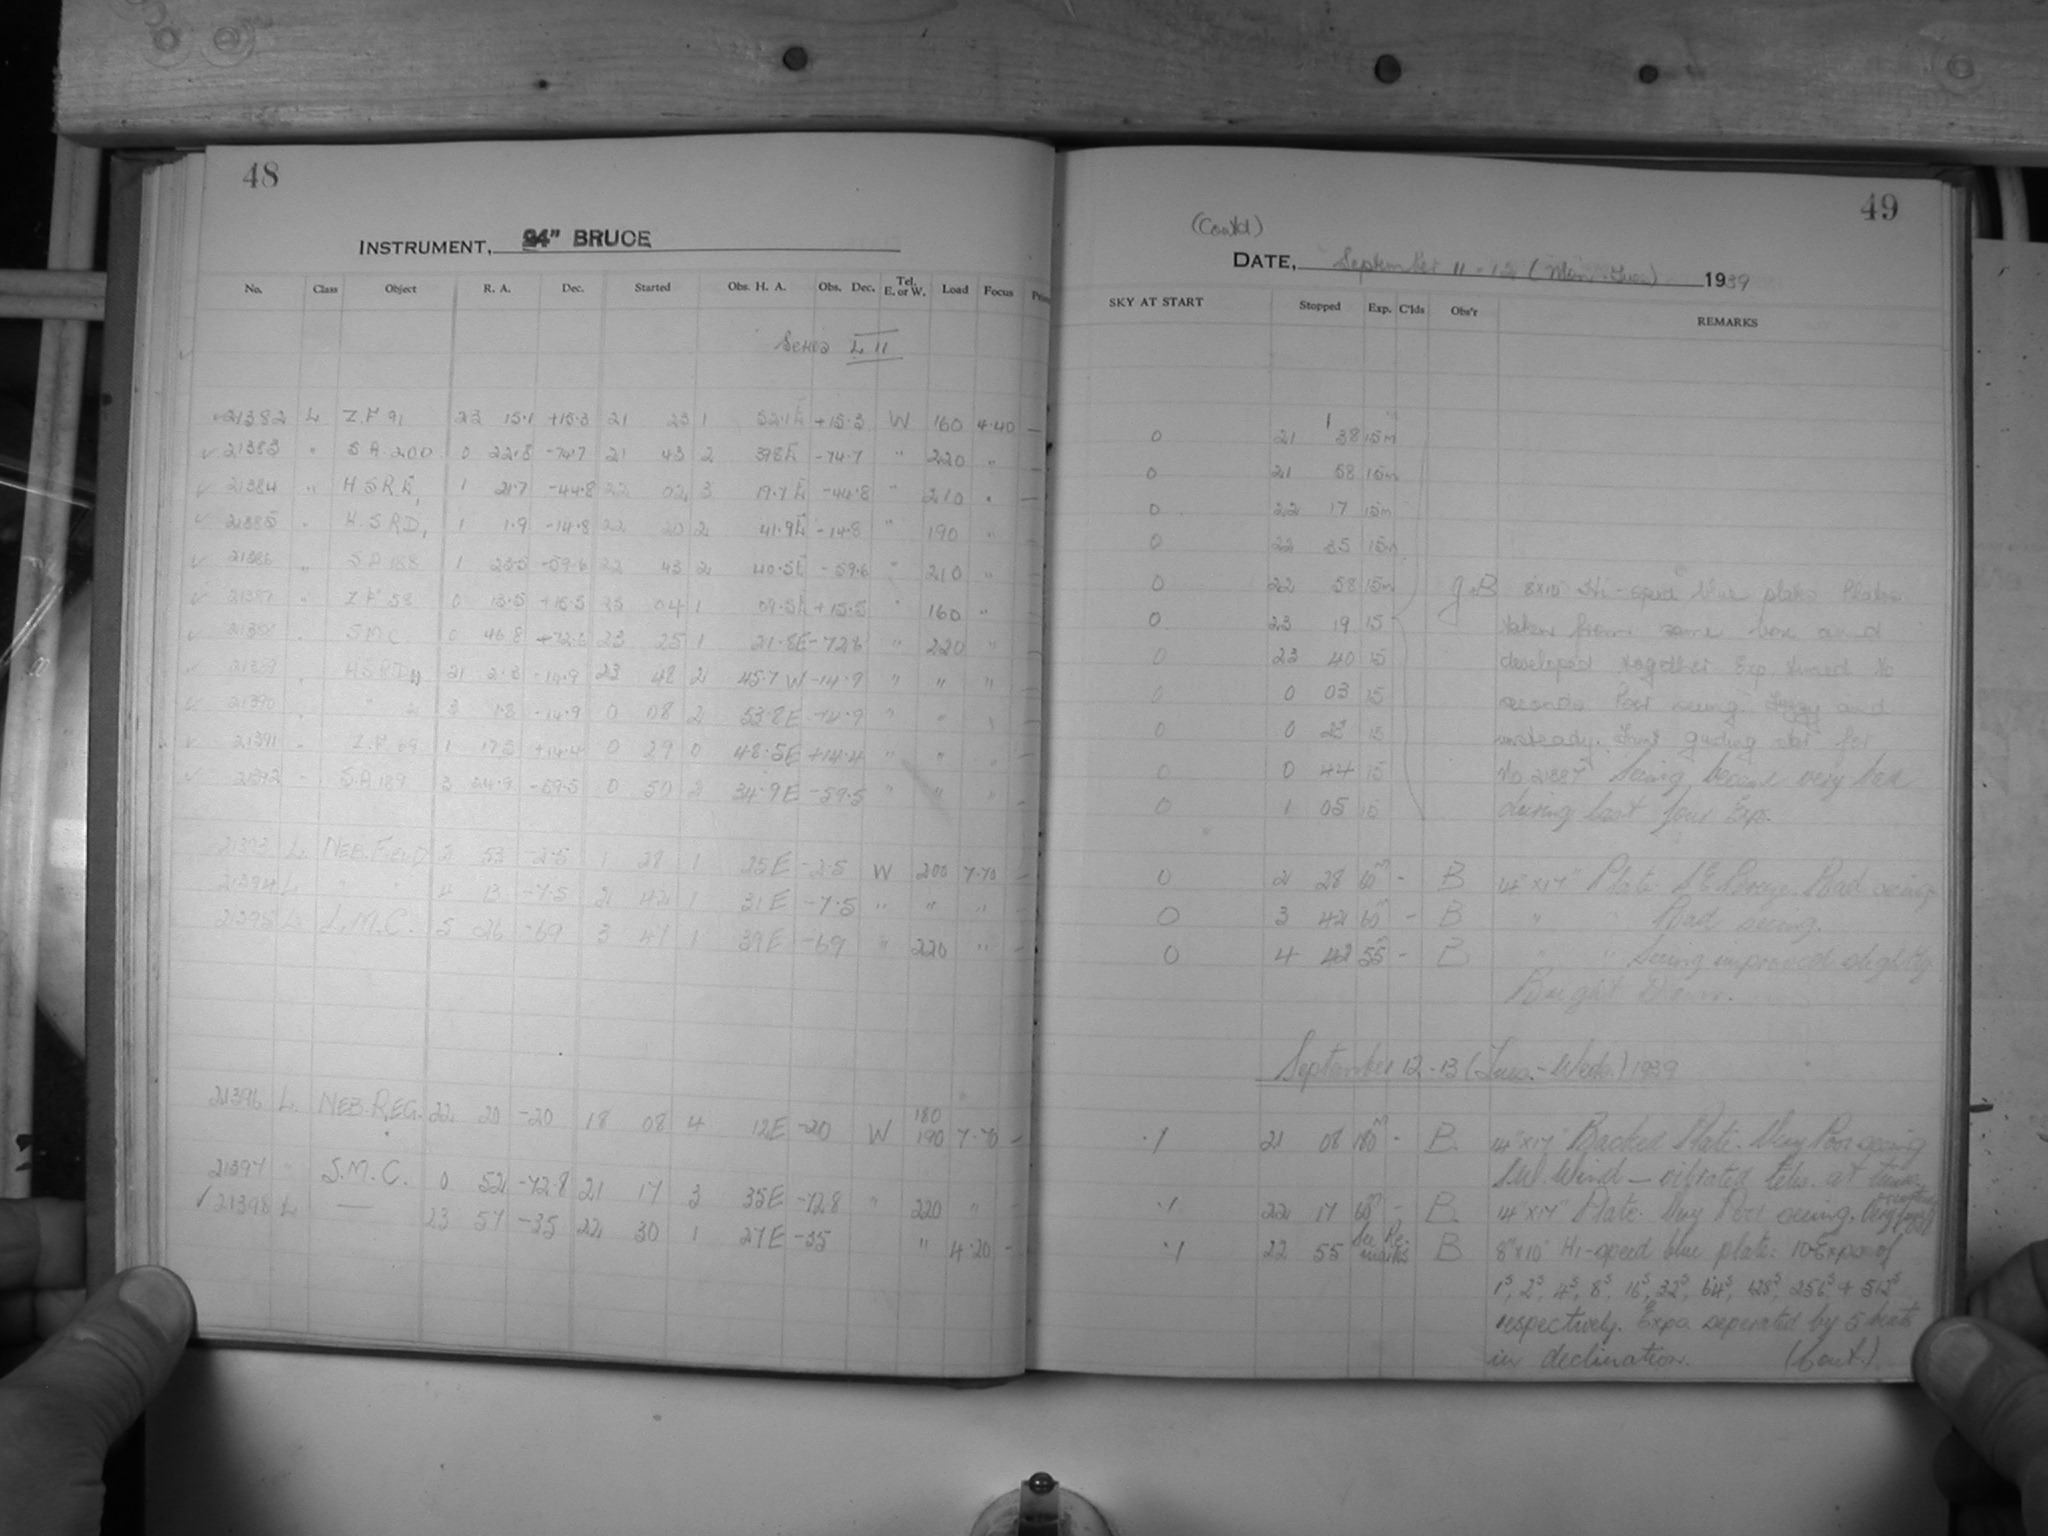 48
INSTRUMENT, 24" BRUCE
No. Class Object R. A. Dec. Started Obs. H. A. Obs. Dec. Tel. E. or W. Load Focus
Series L II
21382 L Z.F 91 23 15.1 +15.3 21 23 1 52.1E +15.3 W 160 4.40 —
21383 " S A 200 0 22.8 -74.7 21 43 2 39.8E -74.7 " 220 "
21384 " H S R E, 1 21.7 -44.8 22 02 3 19.7E -44.8 " 210 "
21385 " H.S R D, 1 1.9 -14.8 22 20 2 41.9E -14.8 " 190 "
21386 " S A 188 1 23.5 -59.6 22 43 2 40.5E -59.6 " 210 "
21387 " Z F 58 0 13.5 +15.5 23 04 1 09.5E +15.5 " 160 "
21388 " S.M.C. 0 46.8 +72.6 23 25 1 21.8E -72.6 " 220 "
21389 " H S R D 21 2.3 -14.9 23 48 2 45.7 W -14.9 " " "
21390 " " 3 1.8 -14.9 0 08 2 53.8E -14.9 " "
21391 " Z.F 69 1 17.5 +14.4 0 29 0 48.5E +14.4 " " "
21392 " S.A 189 3 24.9 -59.5 0 50 2 34.9E -59.5 " " "
21393 L. NEB. FIELD 2 53 -2.5 1 28 1 25E -2.5 W 200 7.70 —
21394 L " " 4 13 -7.5 2 42 1 31E -7.5 " " "
21395 L L.M.C. 5 26 -69 3 47 1 39E -69 " 220 "
21396 L. NEB. REG. 22 20 -20 18 08 4 12E -20 W 180 190 7.70 —
21397 " S.M.C. 0 52 -72.8 21 17 3 35E -72.8 " 220 "
✓ 21398 L — 23 57 -35 22 30 1 27E -35 " 4.20 —
49
(Contd)
DATE, September 11-12 (Mon.-Tues) 1939
SKY AT START Stopped Exp. C'lds Obs'r REMARKS
0 21 38 15m
0 21 58 15m
0 22 17 15m
0 22 35 15m
0 22 58 15m J.B 8"x10" Hi-speed blue plates Plates
0 23 19 15 taken from same box and
0 23 40 15 developed together. Exp. timed to
0 0 03 15 seconds. Poor seeing. Fuzzy and
0 0 23 15 unsteady. Faint guiding star for
0 0 44 15 No 21387 Seeing became very bad
0 1 05 15 during last four Exp.
0 2 28 60m - B 14"x17" Plate. Bad seeing
0 3 42 60m - B " " Bad seeing.
0 4 42 55m - B " " Seeing improved slightly
Bright Dawn.
September 12-13 (Tues.-Weds.) 1939
.1 21 08 180m - B. 14"x17" Backed Plate. Very Poor seeing
S.W. Wind — vibrated tele. at times.
.1 22 17 60m - B. 14"x17" Plate. Very Poor seeing.
.1 22 55 See Remarks B 8"x10" Hi-speed blue plate. 10 Expo of
1s, 2s, 4s, 8s, 16s, 32s, 64s, 128s, 256s, + 512s
respectively. Expo. seperated by 5 beats
in declination. (Cont.)